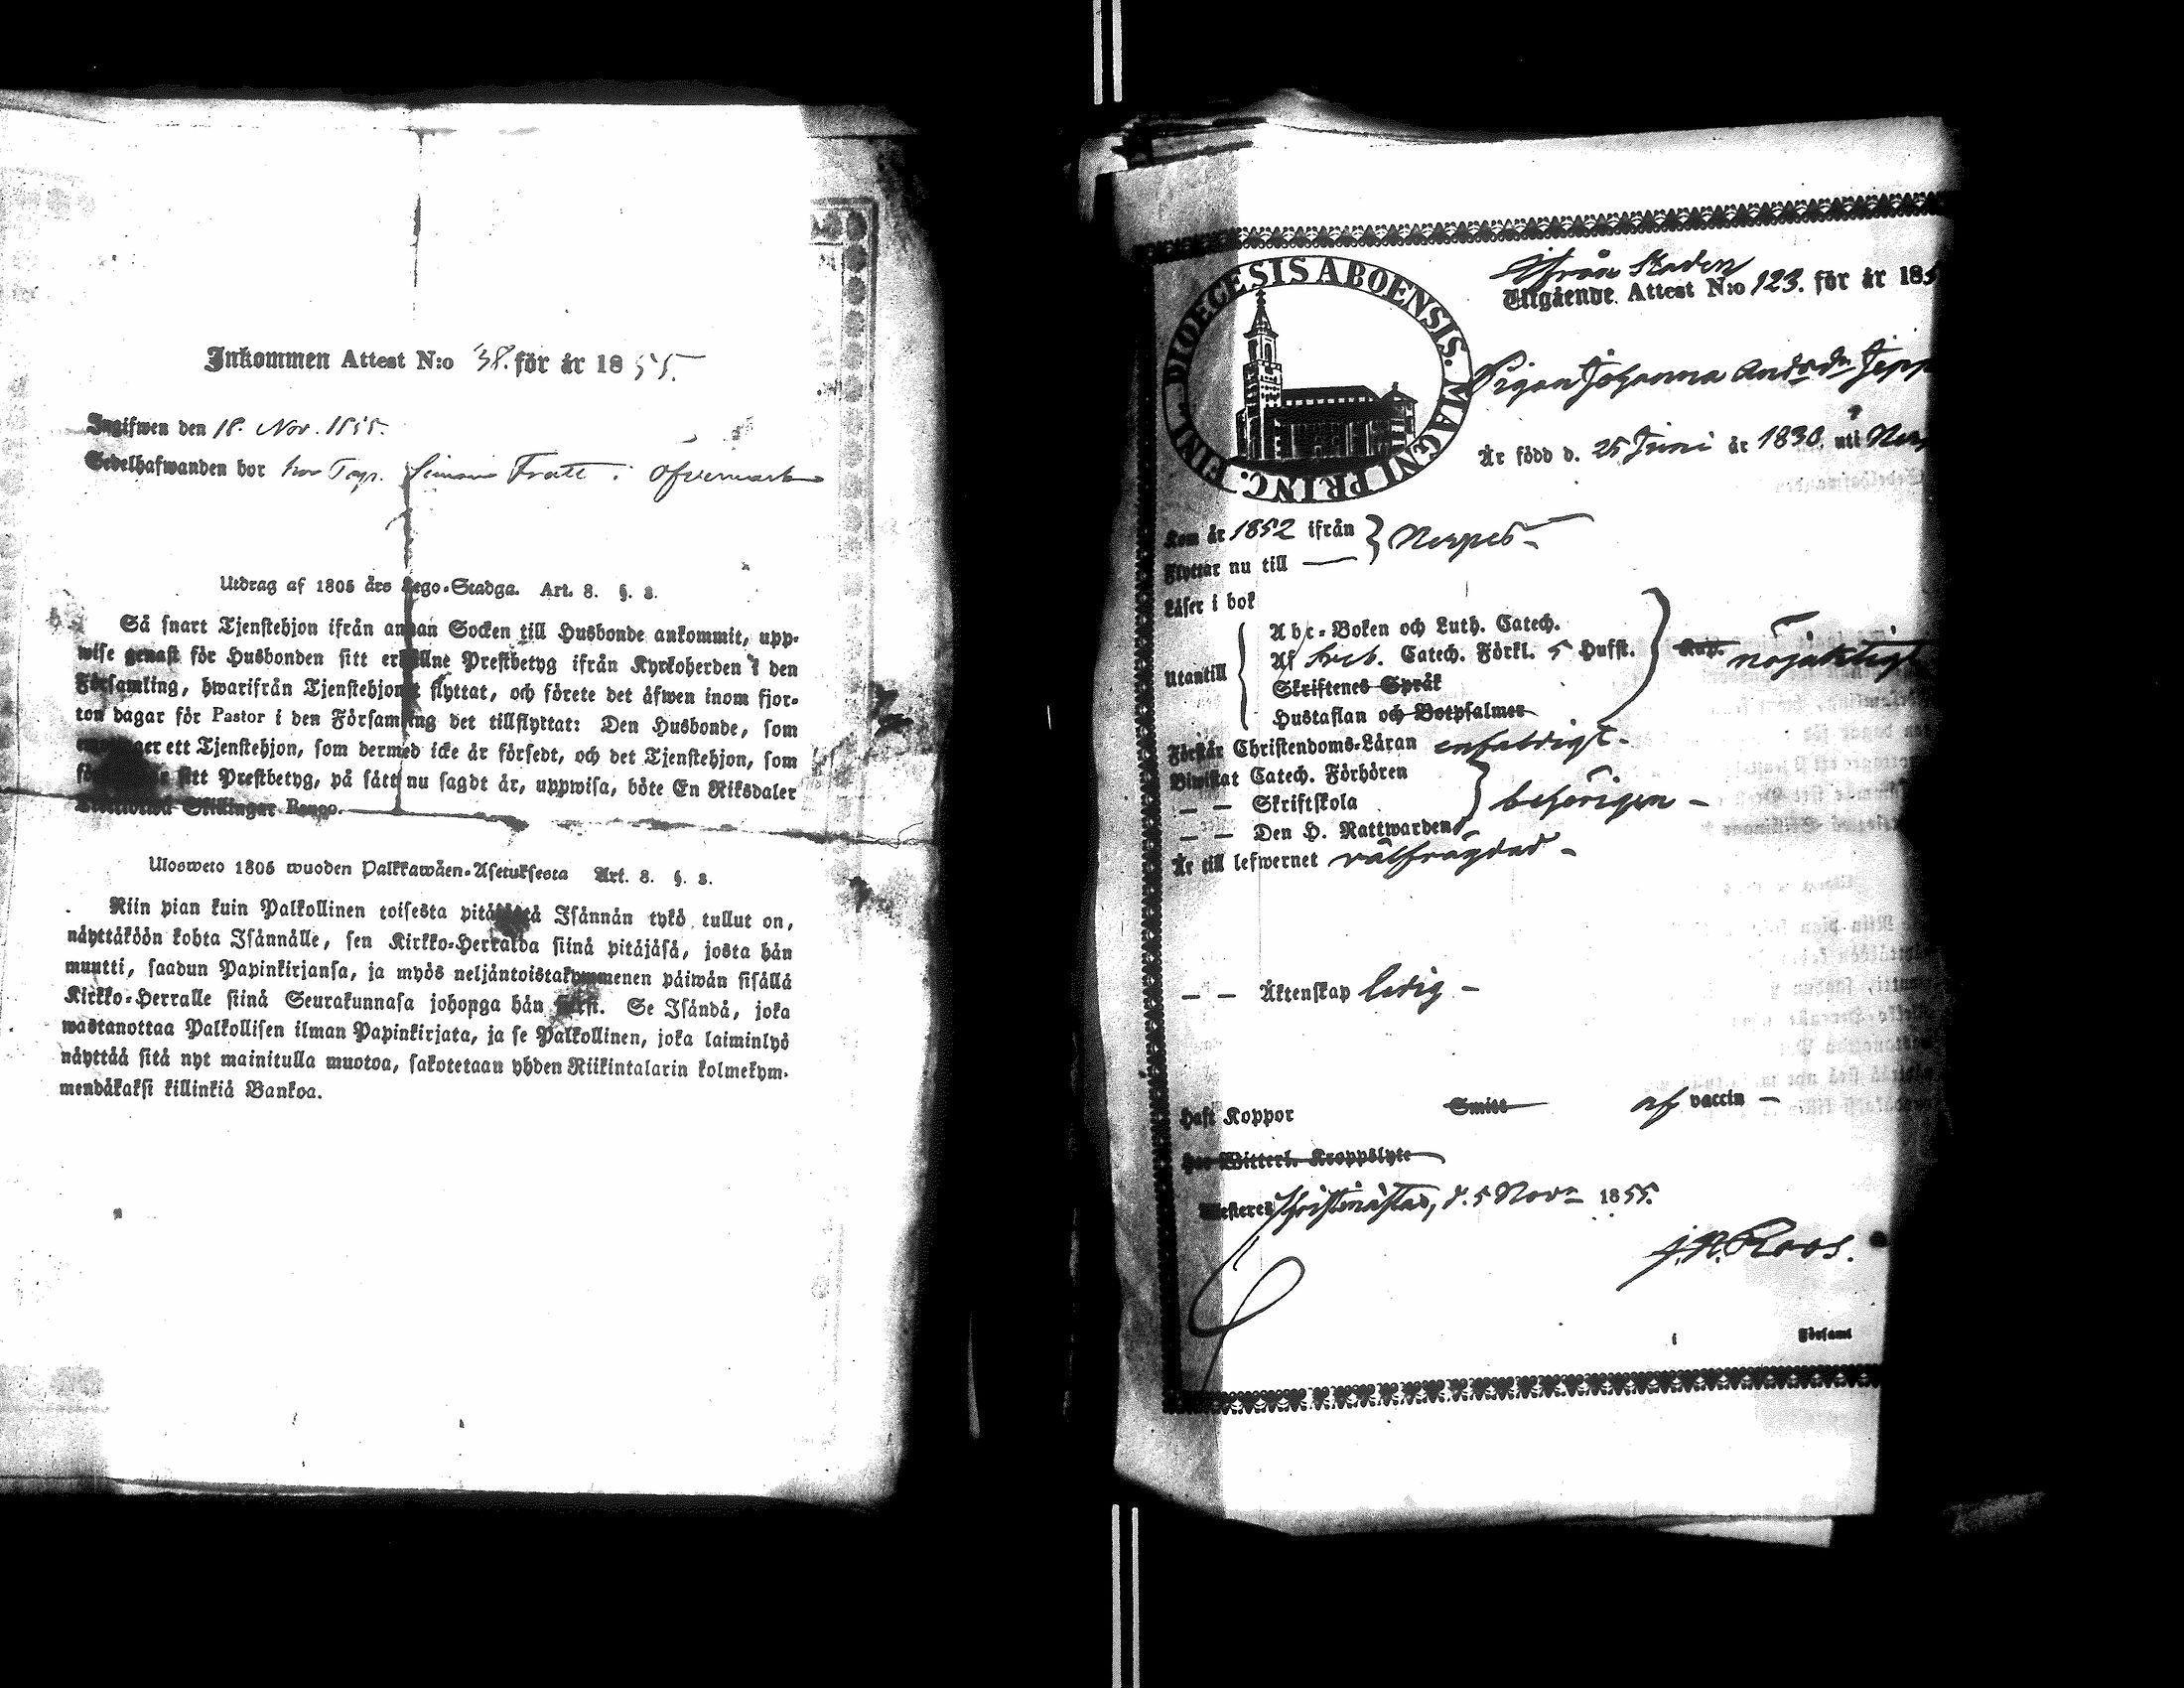 Inkommen Attest N:o 38. för år 1855.
Ingifwen den 18. Nov. 1855.
Sedelhafwanden bor hos Torp. Simon Fratt i Öfvermark
Utdrag af 1805 års Lego-Stadga. Art. 8. §. 2.
Så snart Tjenstehjon ifrån annan Socken till Husbonde ankommit, upp-
wise genast för Husbonden sitt erhållne Prestbetyg ifrån Kyrkoherden i den
Församling, hwarifrån Tjenstehjonet flyttat, och förete det äfwen inom fjor-
ton dagar för Pastor i den Församling det tillflyttat: Den Husbonde, som
ett Tjenstehjon, som dermed icke är försedt, och det Tjenstehjon, som
sitt Prestbetyg, på sätt nu sagdt är, uppwisa, böte En Riksdaler
Skillingar Banco.
Ulosweto 1805 wuoden Palkkawäen-Asetuksesta Art. 8. §. 2.
Niin pian kuin Palkollinen toisesta pitäjästä Isännän tykö tullut on,
näyttäköön kohta Isännälle, sen Kirkko-Herralda siinä pitäjäsä, josta hän
muutti, saadun Papinkirjansa, ja myös neljäntoistakymmenen päiwän sisällä
Kirkko-Herralle siinä Seurakunnasa johonga hän siirsi. Se Isändä, joka
wastanottaa Palkollisen ilman Papinkirjata, ja se Palkollinen, joka laiminlyö
näyttää sitä nyt mainitulla muotoa, sakotetaan yhden Riikintalarin kolmekym-
mendäkaksi killinkiä Bankoa.
DIOECESIS ABOENSIS. MAGNI PRINC. FINL.
Ifrån Staden
Utgående Attest N:o 123. för år 185
Pigan Johanna Andsdr Jepp
Är född d. 25 Juni år 1830. uti Ner
Kom år 1852 ifrån } Nerpes
Flyttar nu till —
Läser i bok
Utantill
Abc-Boken och Luth. Catech.
Af Sveb. Catech. Förkl. 5 Hufst. nöjaktigt
Skriftenes Språk
Hustaflan och Botpsalmer
Förstår Christendoms-Läran enfaldigt -
Biwistat Catech. Förhören
— — Skriftskola } behörigen -
— — Den H. Nattwarden
Är till lefwernet välfrägdad -
— — Äktenskap ledig -
Haft Koppor Smitt af vaccin —
Har Witterl. Kroppslyte
Attesteres Christinæstad, d. 5 Novr 1855.
J. N. Roos.
i Församl